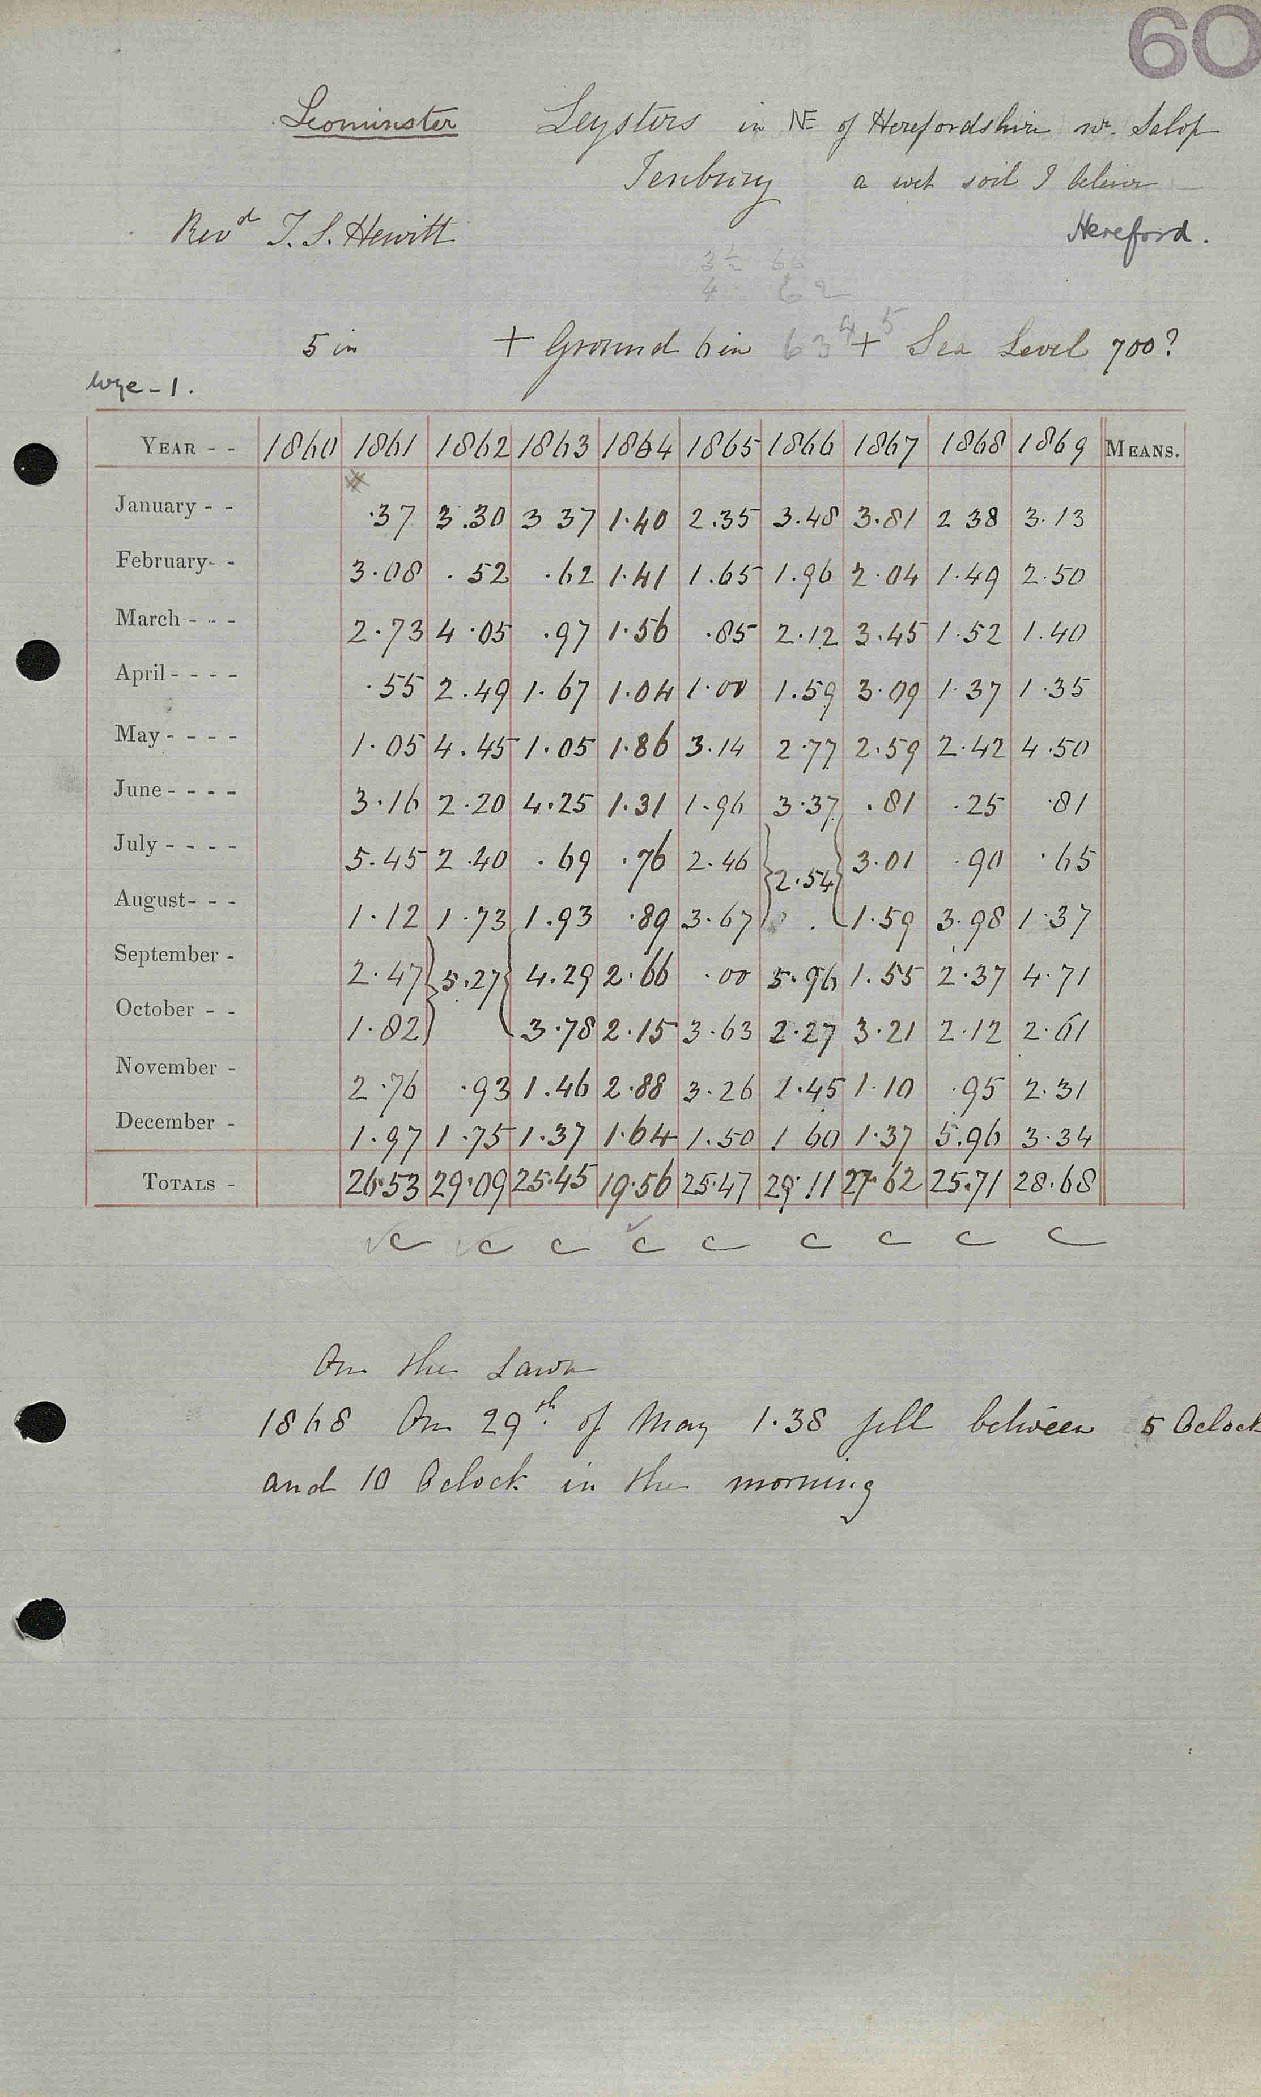 60
Leominster Leysters in NE of Herefordshire nr. Salop
Tenbury a wet soil I believe
Revd T. S. Hewitt Hereford.
3½ 66
4 62
5 in + Ground 6 in 63 4 + 5 Sea Level 700?
Wye - 1.
YEAR - - 1860 1861 1862 1863 1864 1865 1866 1867 1868 1869 MEANS.
January - - .37 3.30 3 37 1.40 2.35 3.48 3.81 2 38 3.13
February- - 3.08 .52 .62 1.41 1.65 1.96 2.04 1.49 2.50
March - - - 2.73 4.05 .97 1.56 .85 2.12 3.45 1.52 1.40
April - - - - .55 2.49 1.67 1.04 1.00 1.59 3.09 1.37 1.35
May - - - - 1.05 4.45 1.05 1.86 3.14 2.77 2.59 2.42 4.50
June - - - - 3.16 2.20 4.25 1.31 1.96 3.37 .81 .25 .81
July - - - - 5.45 2.40 .69 .76 2.46 } 2.54 { 3.01 .90 .65
August- - - 1.12 1.73 1.93 .89 3.67 1.59 3.98 1.37
September - 2.47 } 5.27 { 4.29 2.66 .00 5.96 1.55 2.37 4.71
October - - 1.82 3.78 2.15 3.63 2.27 3.21 2.12 2.61
November - 2.76 .93 1.46 2.88 3.26 1.45 1.10 .95 2.31
December - 1.97 1.75 1.37 1.64 1.50 1 60 1.37 5.96 3.34
TOTALS - 26.53 29.09 25.45 19.56 25.47 29.11 27.62 25.71 28.68
c c c c c c c c c
On the Lawn
1868 On 29th of May 1.38 fell between 5 Oclock
and 10 Oclock in the morning